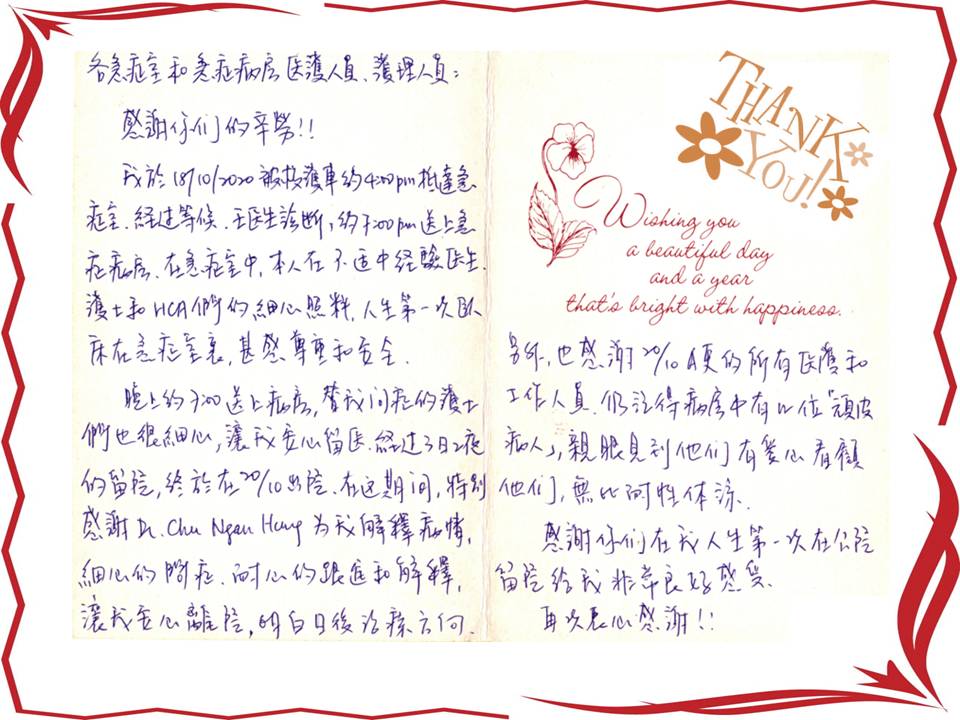 各急症室和急症病房医護人員、護理人員：
感謝你们的辛勞!!
我於18/10/2020被救護車約4:00pm抵達急
症室、経过等候、王医生診断，約7:00pm送上急
症病房、在急症室中，本人在不适中経驗医生
護士和HCA們的細心照料，人生第一次臥
床在急症室裏，甚感尊重和安全.
晚上約7:00送上病房，替我问症的護士
們也很細心，讓我安心留医.経过3日2夜
的留院，終於在20/10出院.在这期间，特别
感謝Dr. Chu Ngan Hung为我解釋病情，
細心的問症、耐心的跟進和解釋，
讓我安心離院，明白日後治療方向.
THANK
YOU!
Wishing you
a beautiful day
and a year
that's bright with happiness.
另外，也感謝20/10 A更的所有医護和
工作人員.仍記得病房中有位「頑皮
病人」，親眼見到他们有愛心看顧
他们，無比耐性体涼.
感謝你们在我人生第一次在公院
留院给我非常良好感受.
再次衷心感謝!!